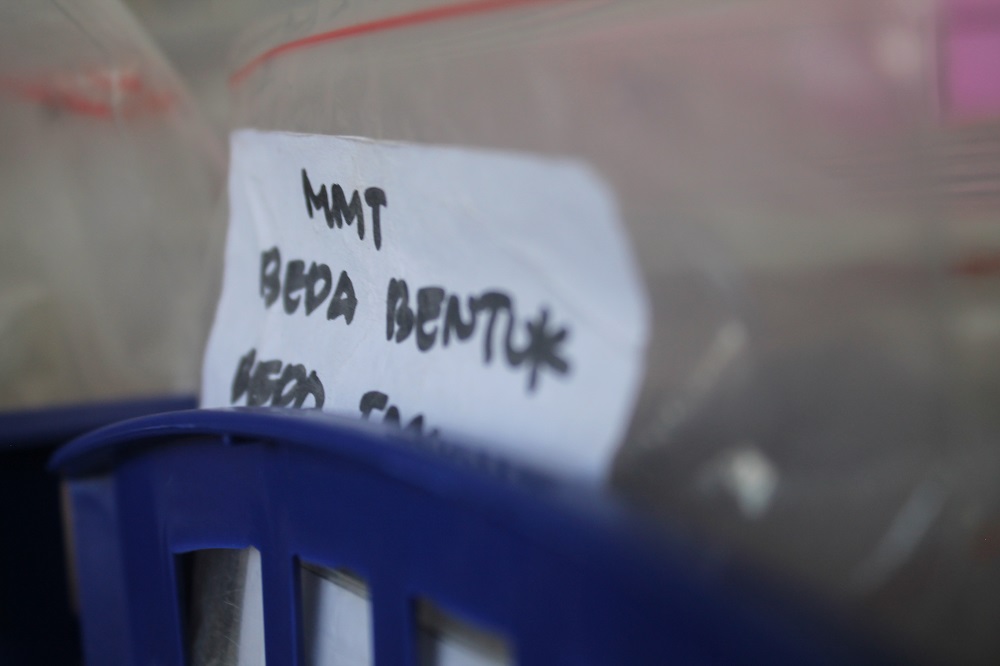 MMT
BEDA BENTUK
BEDA